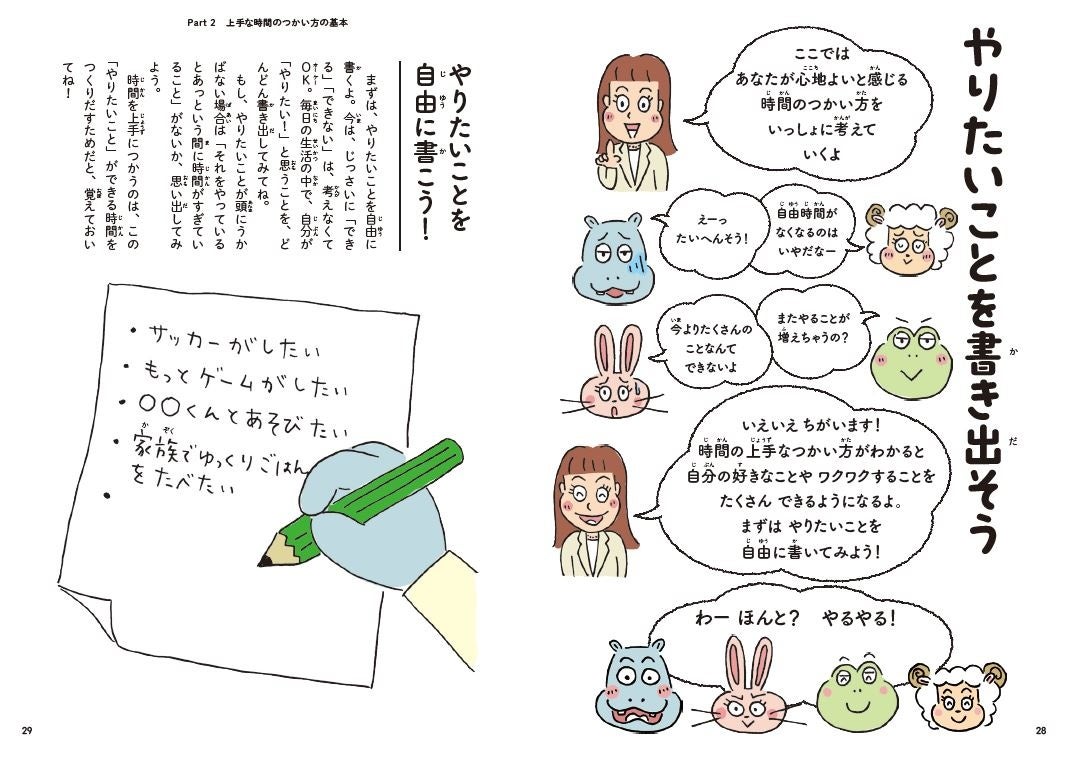 やりたいことを書き出そう
ここでは
あなたが心地よいと感じる
時間のつかい方を
いっしょに考えて
いくよ
自由時間が
なくなるのは
いやだなー
えーっ
たいへんそう!
またやることが
増えちゃうの?
今よりたくさんの
ことなんて
できないよ
いえいえ ちがいます!
時間の上手なつかい方がわかると
自分の好きなことや ワクワクすることを
たくさん できるようになるよ。
まずは やりたいことを
自由に書いてみよう!
わー ほんと? やるやる!
28
Part 2 上手な時間のつかい方の基本
やりたいことを
自由に書こう!
まずは、やりたいことを自由に
書くよ。今は、じっさいに「でき
る」「できない」は、考えなくて
OK。毎日の生活の中で、自分が
「やりたい!」と思うことを、ど
んどん書き出してみてね。
もし、やりたいことが頭にうか
ばない場合は「それをやっている
とあっという間に時間がすぎてい
ること」がないか、思い出してみ
よう。
時間を上手につかうのは、この
「やりたいこと」ができる時間を
つくりだすためだと、覚えておい
てね!
・サッカーがしたい
・もっとゲームがしたい
・〇〇くんとあそびたい
・家族でゆっくりごはん
をたべたい
・
29